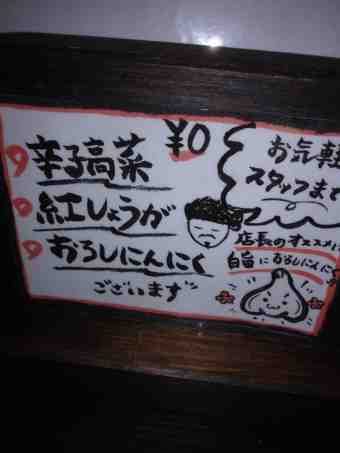 ¥0
辛子高菜
紅しょうが
おろしにんにく
ございます
お気軽
スタッフまで
店長のオススメは
白旨におろしにんにく